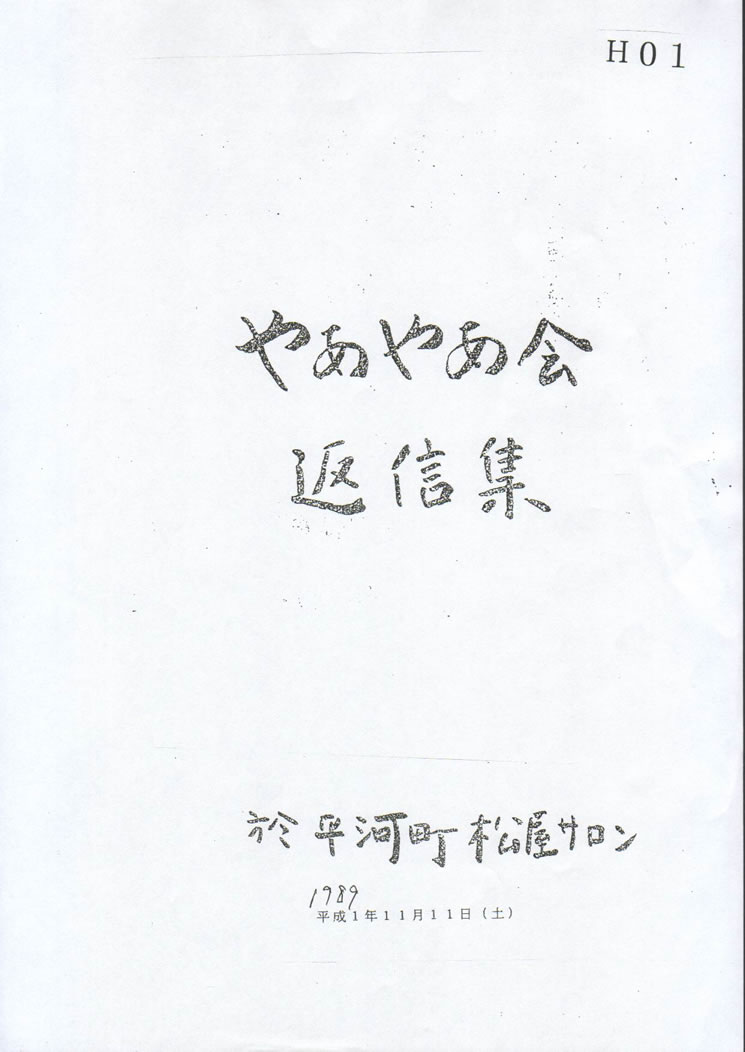 H01
やあやあ会
返信集
於平河町松屋サロン
1989
平成1年11月11日(土)